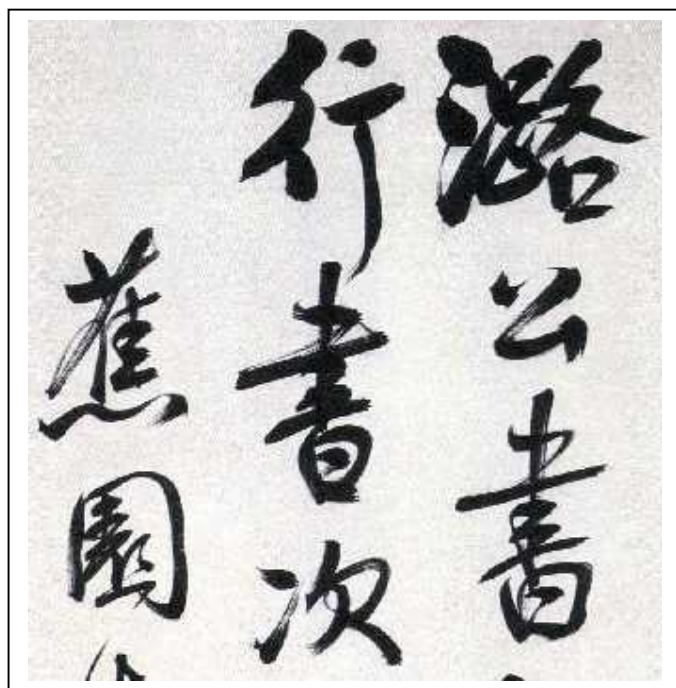 潞公書
行書次
蕉園